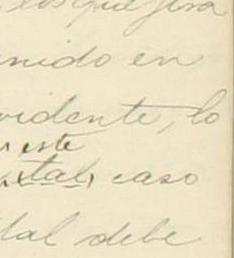 los que
nido en
vidente, lo
este
tal, caso
tal debe